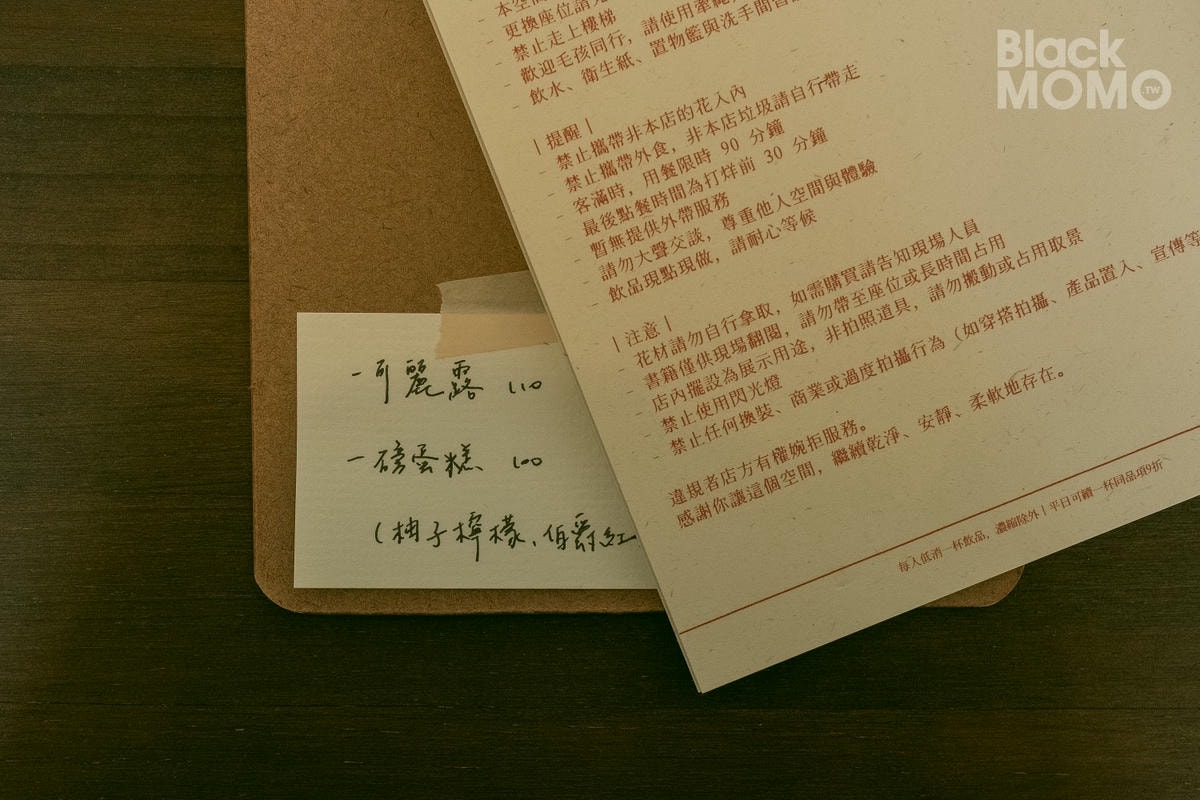 Black
MOMO.TW
- 本空間
- 更換座位請
- 禁止走上樓梯
- 歡迎毛孩同行，請使用牽繩
- 飲水、衛生紙、置物籃與洗手間皆
| 提醒 |
- 禁止攜帶非本店的花入內
- 禁止攜帶外食，非本店垃圾請自行帶走
- 客滿時，用餐限時 90 分鐘
- 最後點餐時間為打烊前 30 分鐘
- 暫無提供外帶服務
- 請勿大聲交談，尊重他人空間與體驗
- 飲品現點現做，請耐心等候
| 注意 |
- 花材請勿自行拿取，如需購買請告知現場人員
- 書籍僅供現場翻閱，請勿帶至座位或長時間占用
- 店內擺設為展示用途，非拍照道具，請勿搬動或占用取景
- 禁止使用閃光燈
- 禁止任何換裝、商業或過度拍攝行為（如穿搭拍攝、產品置入、宣傳等
違規者店方有權婉拒服務。
感謝你讓這個空間，繼續乾淨、安靜、柔軟地存在。
每人低消一杯飲品，濃縮除外｜平日可續一杯同品項9折
- 可麗露 110
- 磅蛋糕 100
(柚子檸檬、伯爵紅